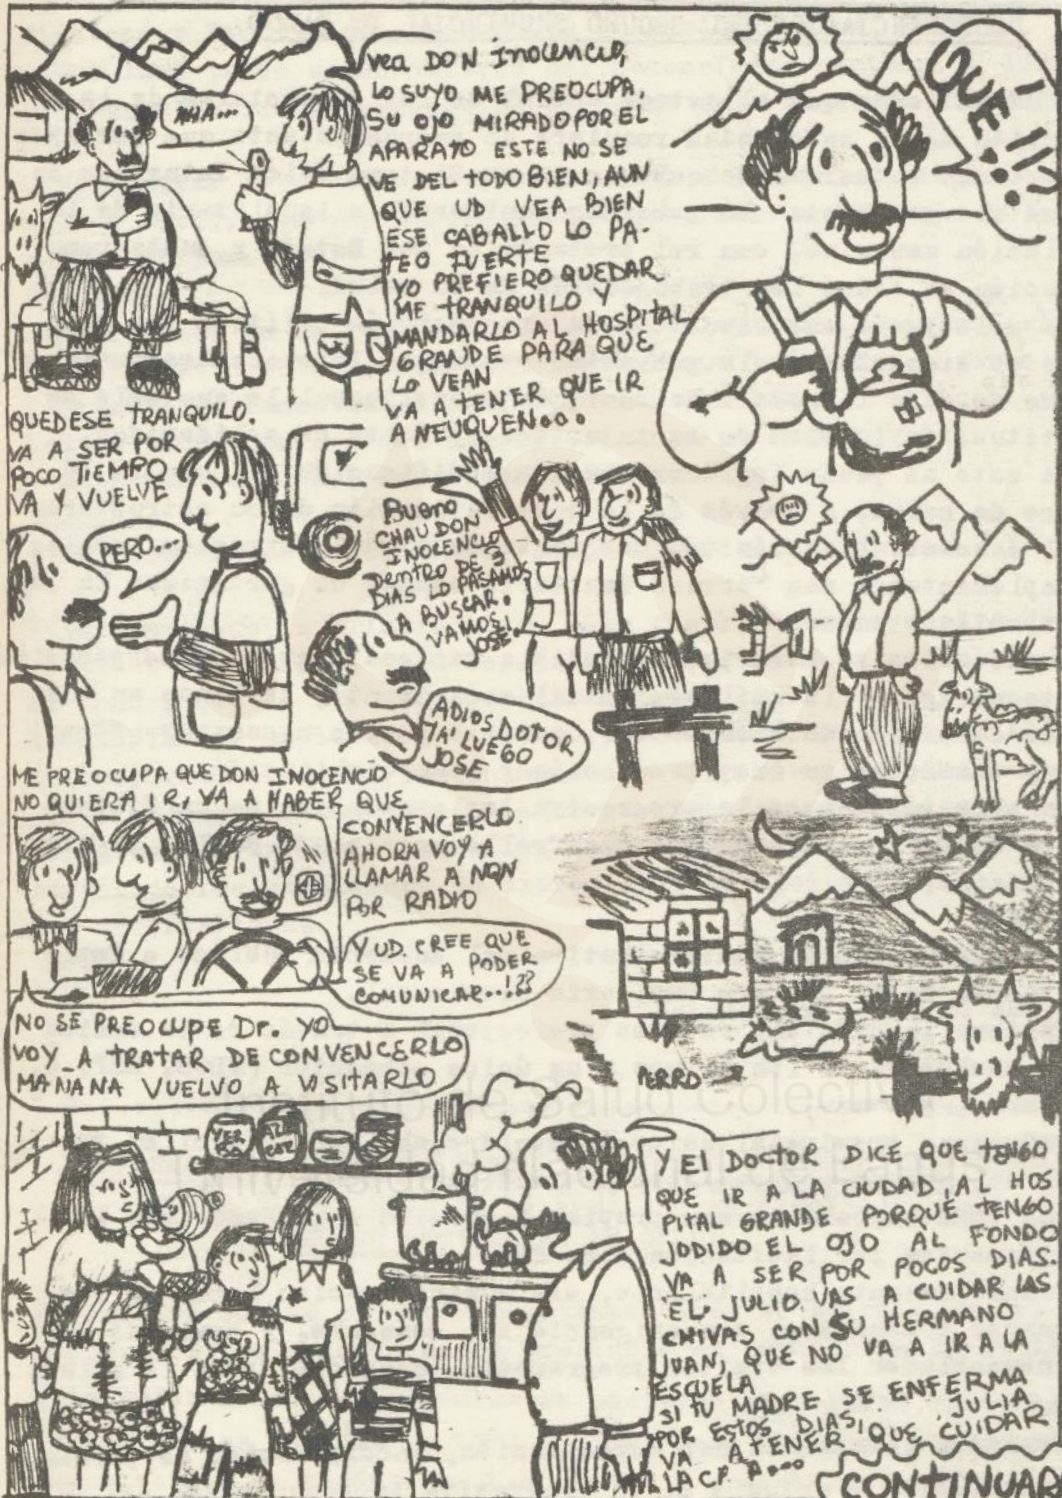 AHA...
Vea DON INOCENCIO,
LO SUYO ME PREOCUPA,
SU OJO MIRADO POR EL
APARATO ESTE NO SE
VE DEL TODO BIEN, AUN
QUE UD VEA BIEN
ESE CABALLO LO PA-
TEO FUERTE
YO PREFIERO QUEDAR
ME TRANQUILO Y
MANDARLO AL HOSPITAL
GRANDE PARA QUE
LO VEAN
VA A TENER QUE IR
A NEUQUEN...
¡QUE!!!
QUEDESE TRANQUILO.
VA A SER POR
POCO TIEMPO
VA Y VUELVE
PERO...
BUENO
CHAU DON
INOCENCIO
DENTRO DE 3
DIAS LO PASAMOS
A BUSCAR.
VAMOS!
JOSE!
ADIOS DOTOR
TA' LUEGO
JOSE
ME PREOCUPA QUE DON INOCENCIO
NO QUIERA IR, VA A HABER QUE
CONVENCERLO
AHORA VOY A
LLAMAR A NQN
POR RADIO
Y UD. CREE QUE
SE VA A PODER
COMUNICAR..!??
NO SE PREOCUPE Dr. YO
VOY A TRATAR DE CONVENCERLO
MAÑANA VUELVO A VISITARLO
PERRO
Salud Colectiva
YER
BA
AZU
CAR
Y El DOCTOR DICE QUE TENGO
QUE IR A LA CIUDAD, AL HOS
PITAL GRANDE PORQUE TENGO
JODIDO EL OJO AL FONDO
VA A SER POR POCOS DIAS.
EL JULIO VAS A CUIDAR LAS
CHIVAS CON SU HERMANO
JUAN, QUE NO VA A IR A LA
ESCUELA
SI TU MADRE SE ENFERMA
POR ESTOS DIAS, JULIA
VA A TENER QUE CUIDAR
LA
CONTINUAR